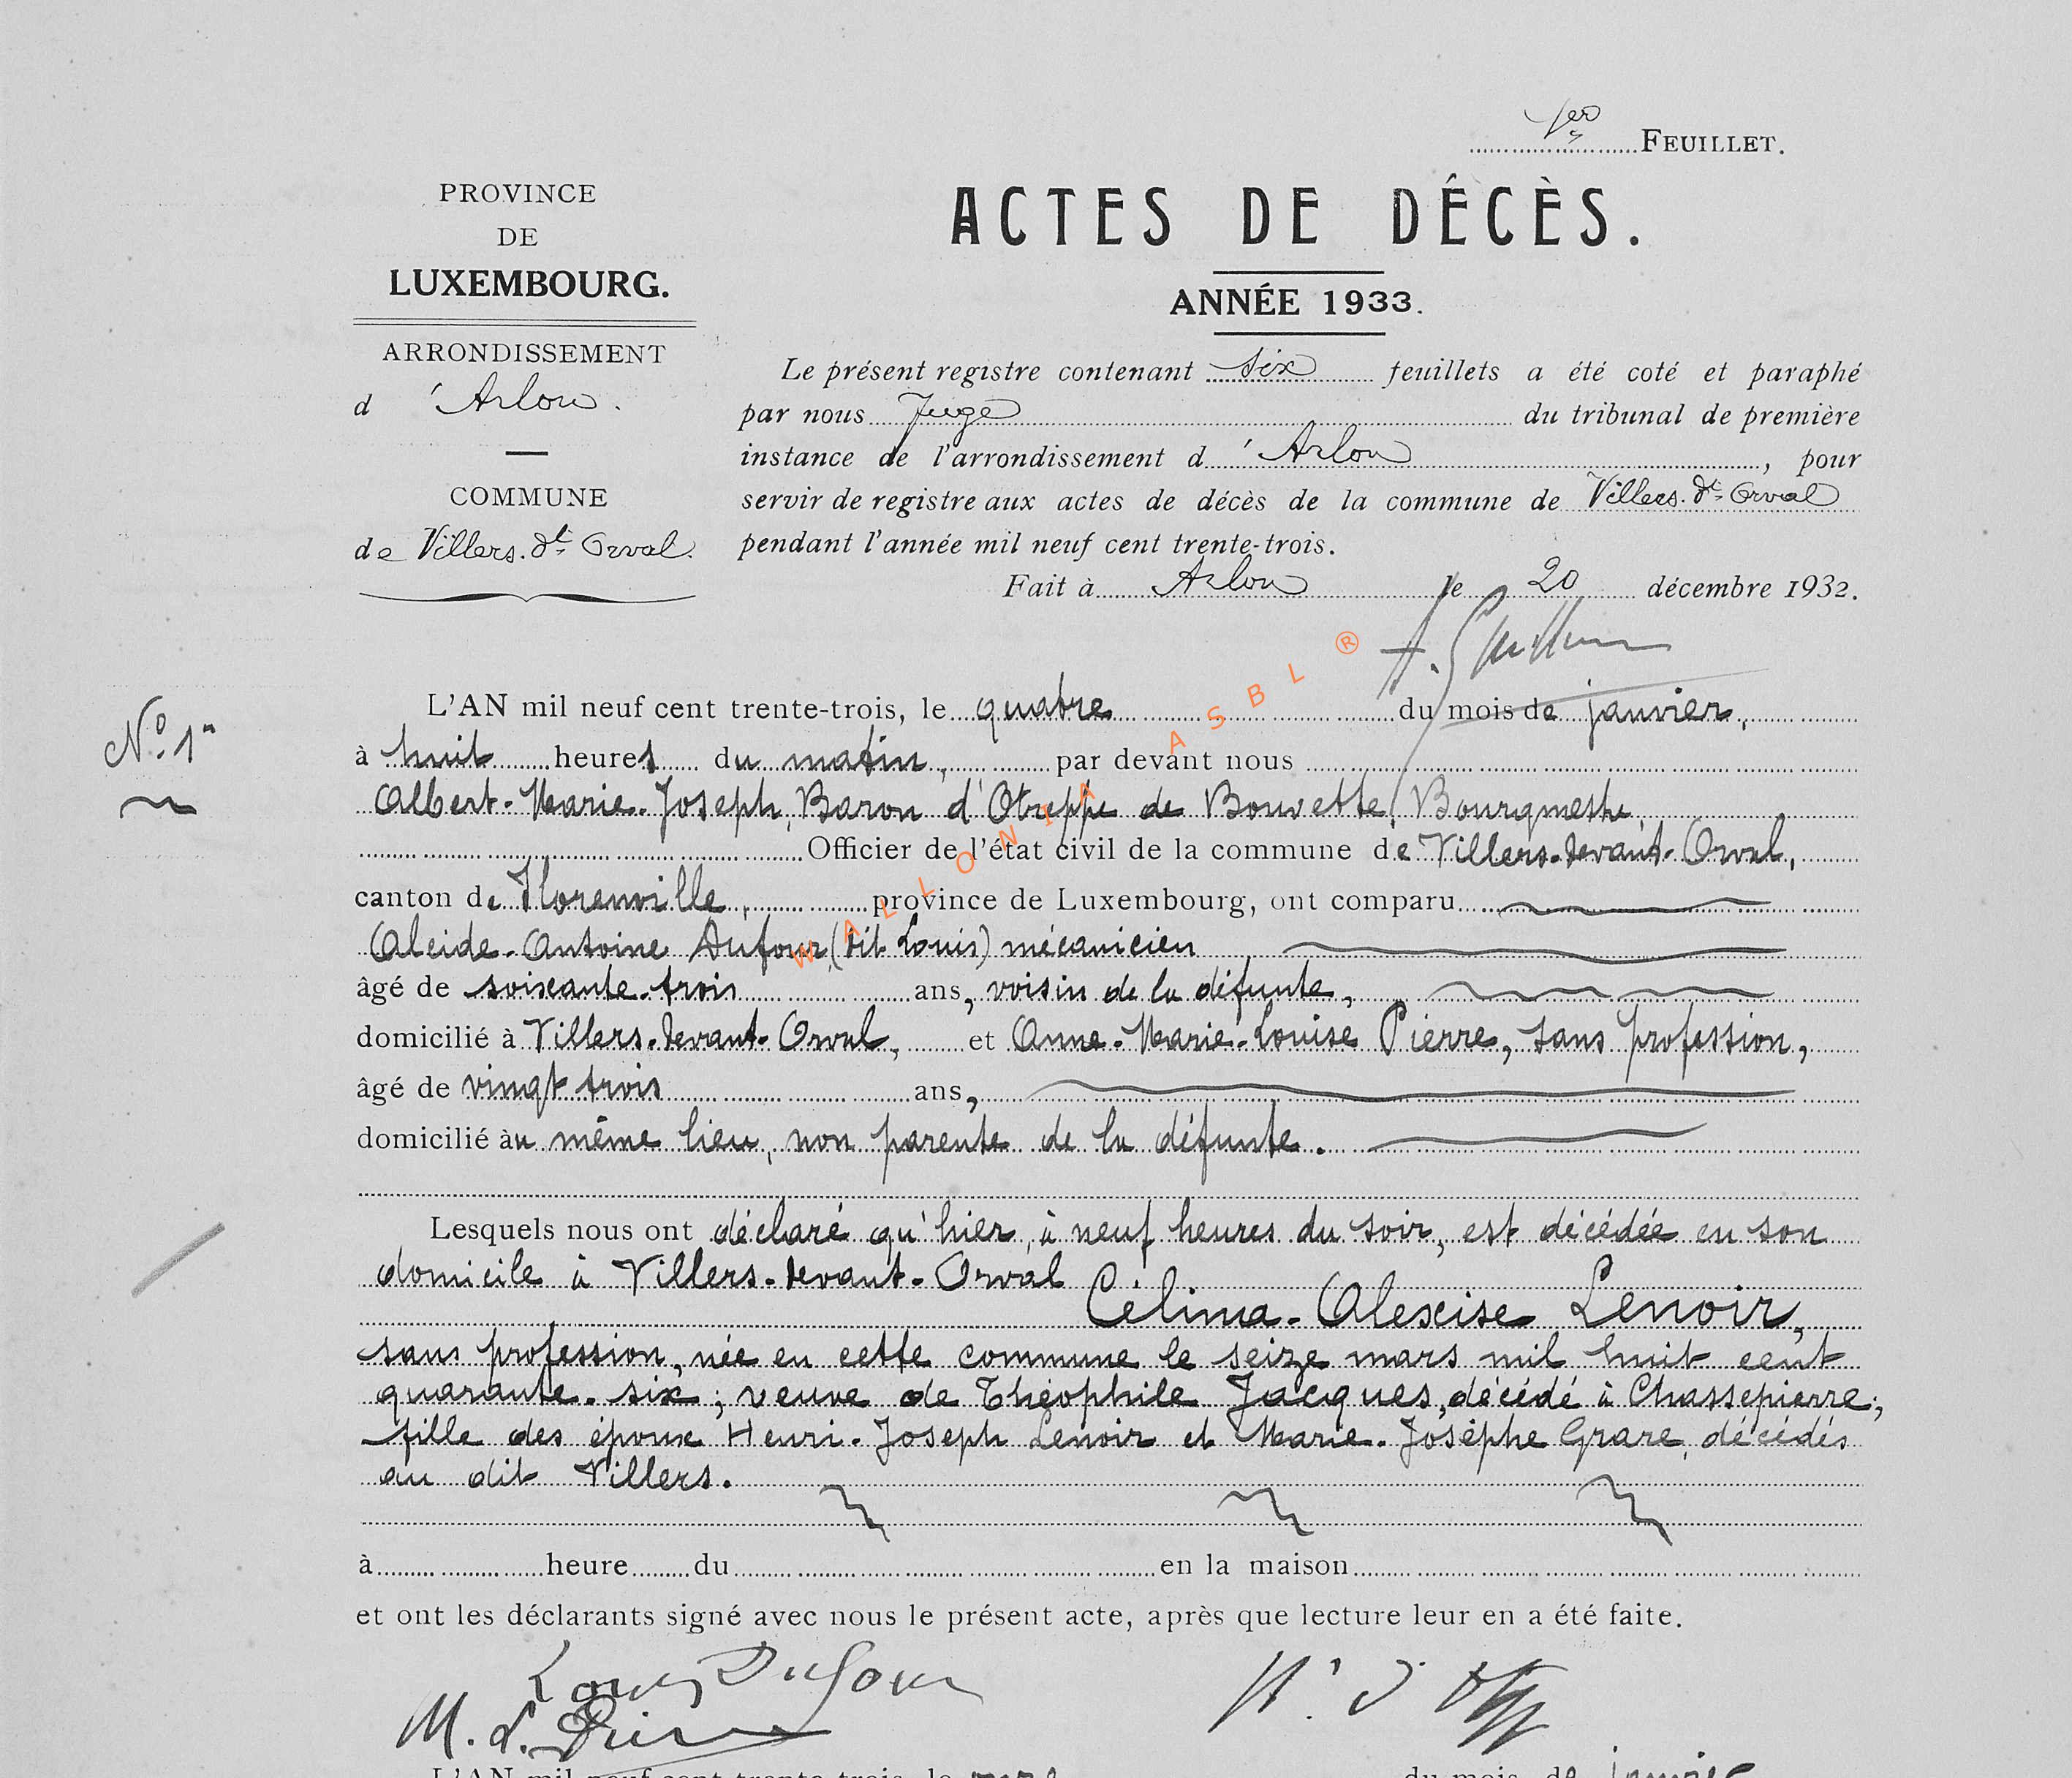 1er FEUILLET.
PROVINCE
DE
LUXEMBOURG.
ARRONDISSEMENT
d'Arlon.
COMMUNE
de Villers. dt Orval.
ACTES DE DÉCÈS.
ANNÉE 1933.
Le présent registre contenant six feuillets a été coté et paraphé
par nous Juge du tribunal de première
instance de l'arrondissement d'Arlon, pour
servir de registre aux actes de décès de la commune de Villers. dt Orval
pendant l'année mil neuf cent trente-trois.
Fait à Arlon le 20 décembre 1932.
WALLONIA ASBL ®
No. 1
L'AN mil neuf cent trente-trois, le quatre du mois de janvier,
à huit heures du matin, par devant nous
Albert-Marie-Joseph, Baron d'Otreppe de Bouvette, Bourgmestre,
Officier de l'état civil de la commune de Villers-devant-Orval,
canton de Florenville, province de Luxembourg, ont comparu
Alcide-Antoine Dufour (dit Louis) mécanicien
âgé de soixante-trois ans, voisin de la défunte,
domicilié à Villers-devant-Orval, et Anne-Marie-Louise Pierre, sans profession,
âgé de vingt trois ans,
domicilié au même lieu, non parente de la défunte.
Lesquels nous ont déclaré qu'hier, à neuf heures du soir, est décédée en son
domicile à Villers-devant-Orval
Célima-Alexise Lenoir,
sans profession, née en cette commune le seize mars mil huit cent
quarante-six; veuve de Théophile Jacques, décédé à Chassepierre;
fille des époux Henri-Joseph Lenoir et Marie-Josèphe Grare, décédés
au dit Villers.
à heure du en la maison
et ont les déclarants signé avec nous le présent acte, après que lecture leur en a été faite.
Louis Dufour
M. L. Pierre
L'AN mil neuf cent trente-trois, le onze du mois de janvier